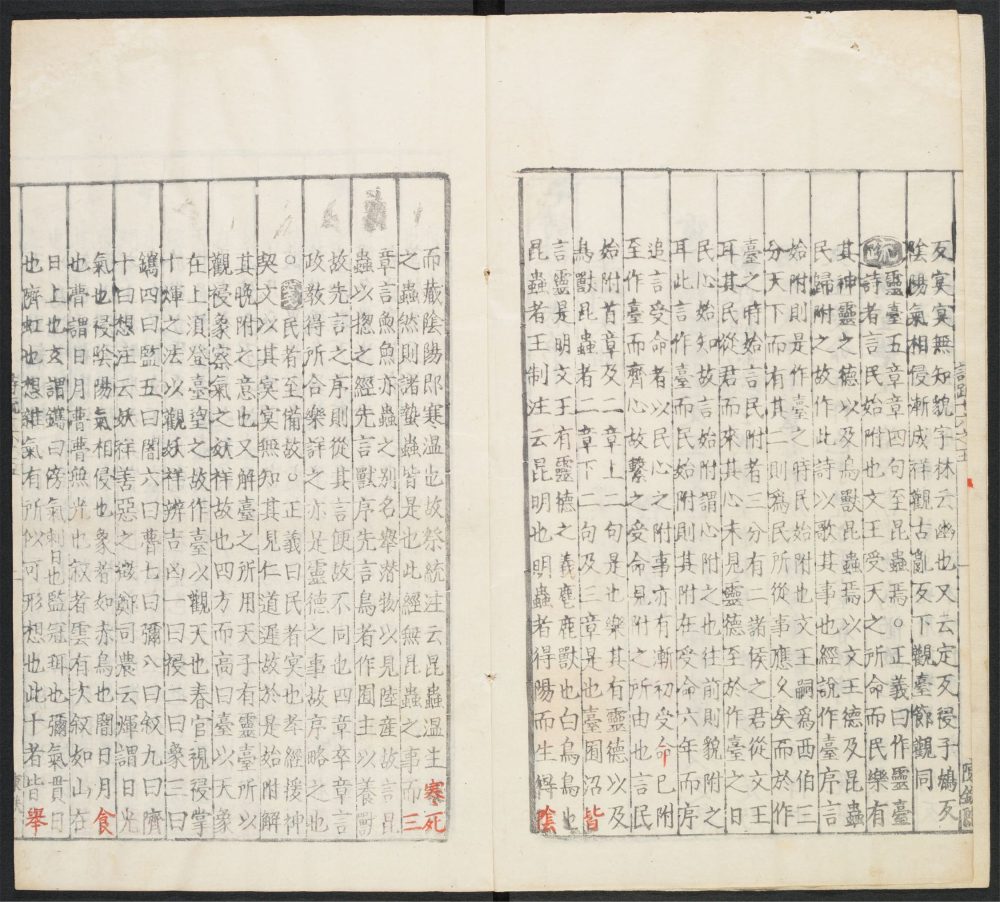 反冥冥無知貌字林云幽也又云定反祲子鴆反
陰陽氣相侵漸成祥觀古亂反下觀臺節觀同
疏靈臺五章章四句至昆蟲焉○正義曰作靈臺
詩者言民始附也文王受天之所命而民樂有
其神靈之德以及鳥獸昆蟲焉以文王德及昆蟲
民歸附之故作此詩以歌其事也經說作臺序言
始附則是作臺之時民始附也文王嗣爲西伯三
分天下而有其二則爲民所從事應久矣而於作
臺之時始言民附者三分有二諸侯之君從文王
耳其民從君而來其心未見靈德至於作臺之日
民心始知故言始附謂心附之也往前則貌附之
耳此言作臺而民始附則其附在受命六年而序
追言受命者以民心之附事亦有漸初受命已附
至作臺而齊心故繫之受命見附之所由也言民
始附首章及二章上二句是也樂其有靈德以及
鳥獸昆蟲者二章下二句及三章是也臺囿沼皆
言靈是明文王有靈德之義麀鹿獸也白鳥鳥也
昆蟲者王制注云昆明也明蟲者得陽而生得陰
而藏陰陽即寒溫也故祭統注云昆蟲溫生寒死
之蟲然則諸蟄蟲皆是也此經無昆蟲之事而三
章言魚魚亦蟲之别名舉潛物以見陸産故言昆
蟲以揔之經先言獸序先言鳥者作囿主以養獸
故先言之序則從其言便故不同也四章卒章言
政教得所合樂詳之亦是靈德之事故序略之也
○民者至備故○正義曰民者冥也孝經援神
契文以其冥冥無知其見仁道遲故於是始附解
其晚附之意也又解臺之所用天子有靈臺所以
觀祲象察氣之妖祥故也四方而高曰臺以天象
在上須登臺望之故作臺以觀天也春官視祲掌
十煇之法以觀妖祥辨吉凶一曰祲二曰象三曰
鑴四曰監五曰闇六曰瞢七曰彌八曰叙九曰隮
十曰想注云妖祥善惡之徵鄭司農云煇謂日光
氣也祲陰陽氣相侵也象者如赤烏也闇日月食
也瞢謂日月瞢瞢無光也叙者雲有次叙如山在
日上也玄謂鑴曰傍氣刺日也監冠珥也彌氣貫日
也隮虹也想雜氣有所似可形想也此十者皆舉